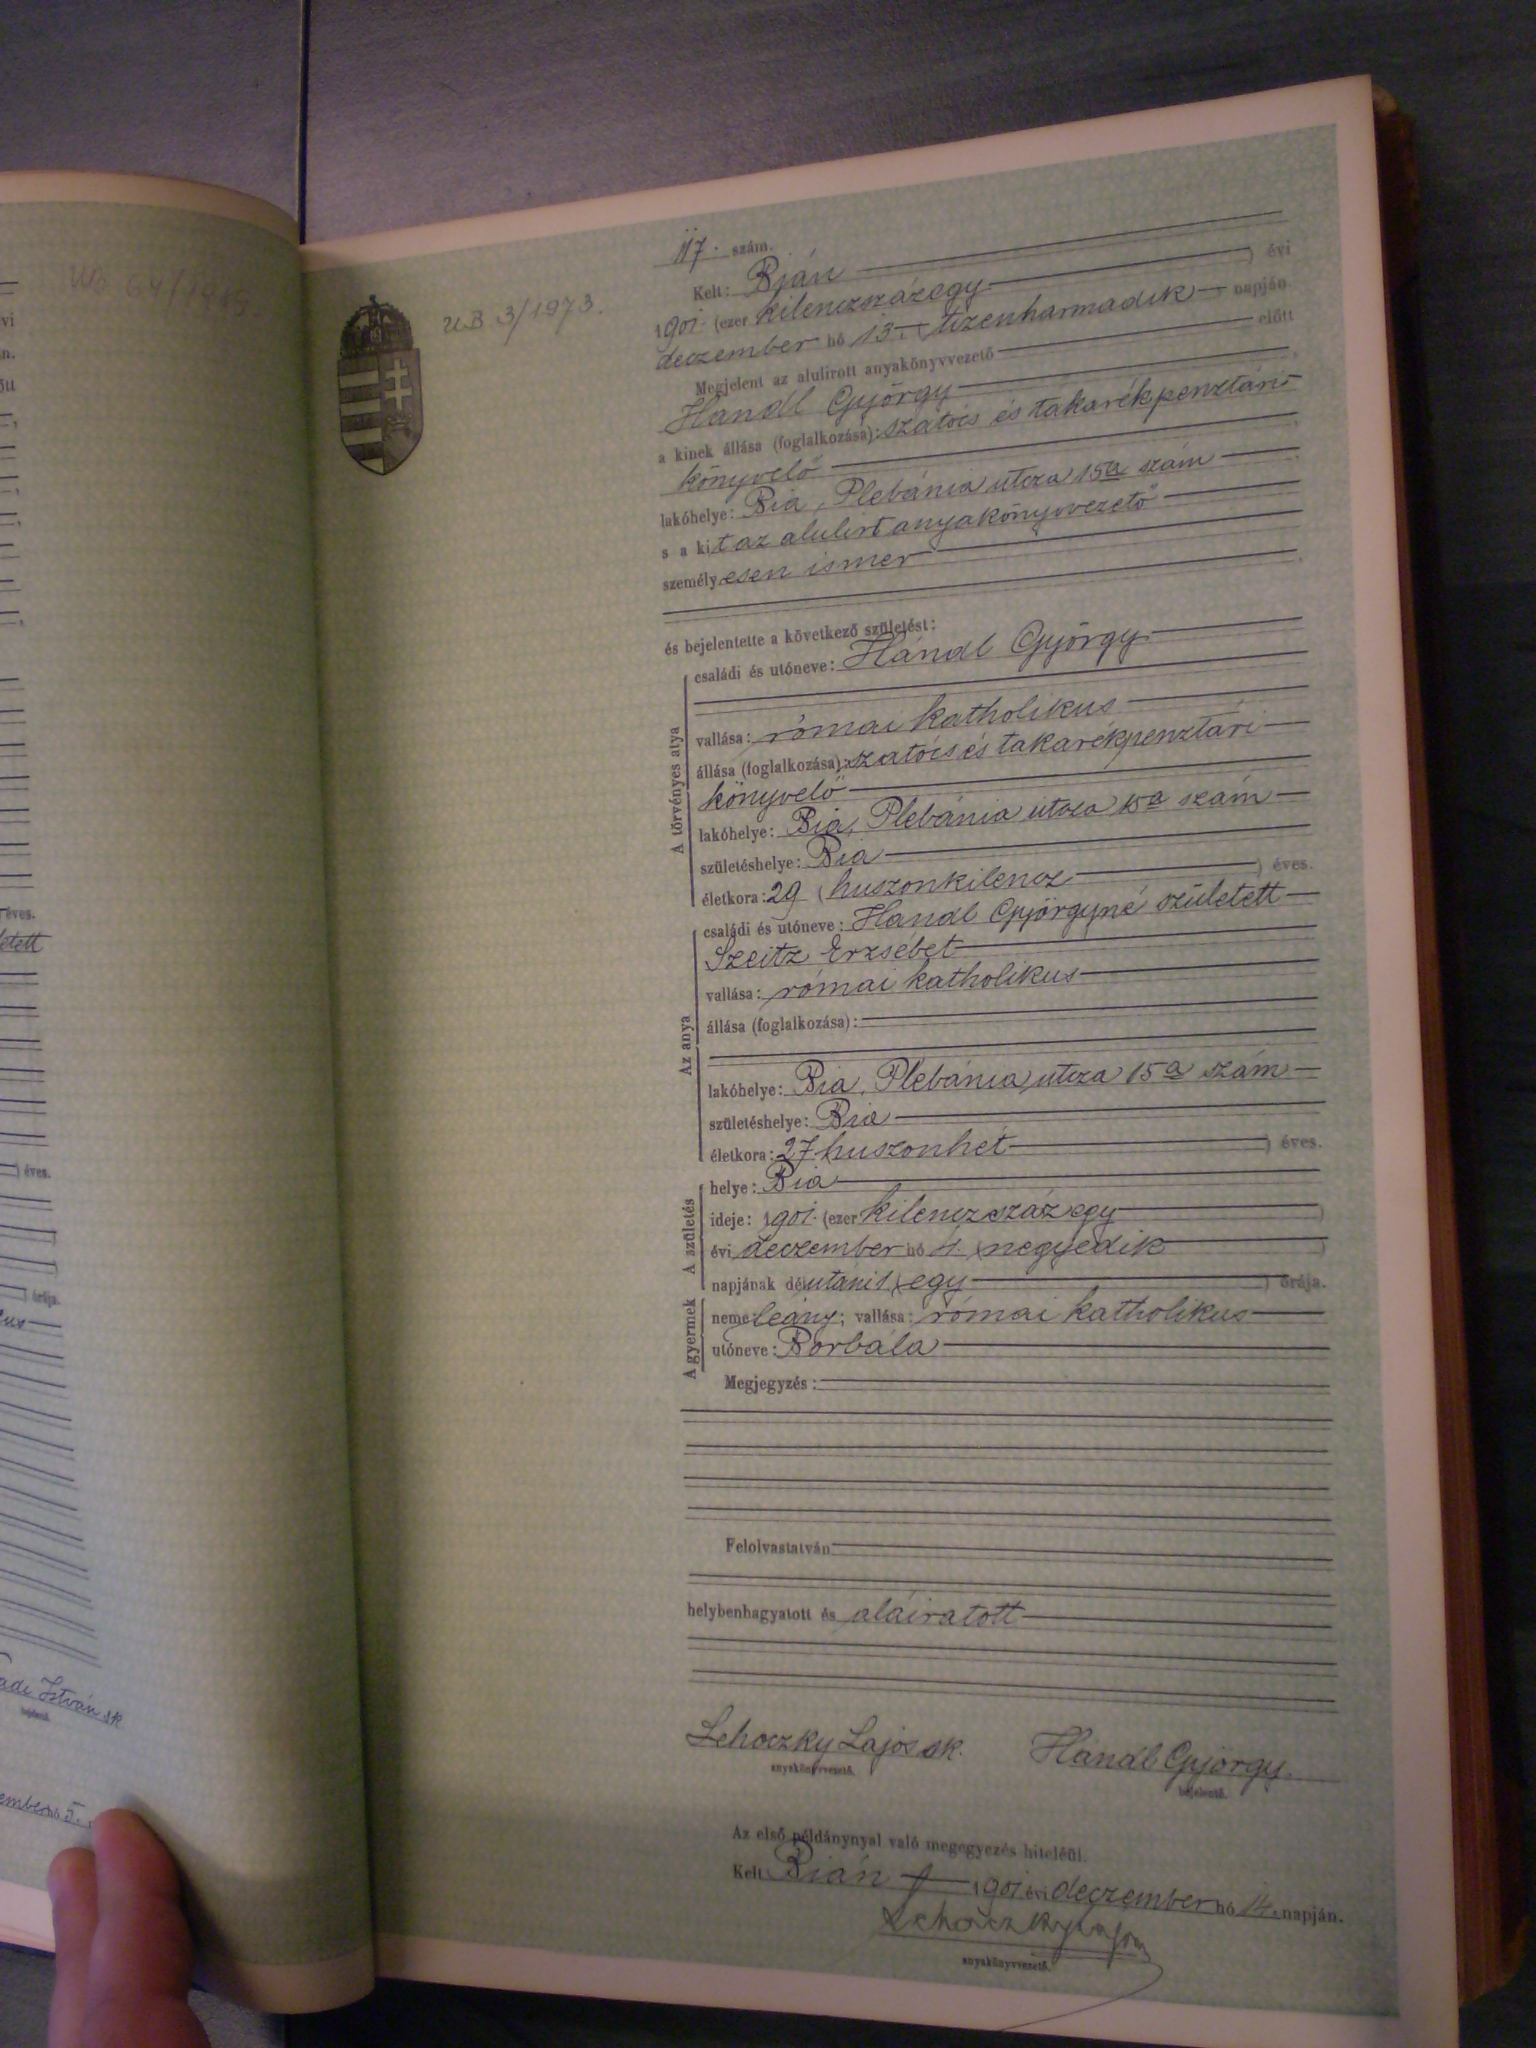 UB 3/1973.
117. szám.
Kelt: Bián
1901. (ezer kilenczszázegy ) évi
deczember hó 13. (tizenharmadik napján
Megjelent az alulirott anyakönyvvezető előtt
Hándl György
a kinek állása (foglalkozása): szatócs és takarékpenztári
könyvelő
lakóhelye: Bia, Plebánia utcza 15a szám
s a kit az alulirt anyakönyvvezető
személyesen ismer
és bejelentette a következő születést:
A törvényes atya
családi és utóneve: Hándl György
vallása: római katholikus
állása (foglalkozása): szatócs és takarékpenztári
könyvelő
lakóhelye: Bia, Plebánia utcza 15a szám
születéshelye: Bia
életkora: 29 (huszonkilencz ) éves.
Az anya
családi és utóneve: Hándl Györgyné született
Szeitz Erzsébet
vallása: római katholikus
állása (foglalkozása):
lakóhelye: Bia, Plebánia utcza 15a szám
születéshelye: Bia
életkora: 27 huszonhét ) éves.
A születés
helye: Bia
ideje: 1901. (ezer kilenczszázegy )
évi deczember hó 4. (negyedik )
napjának délutáni 1 (egy ) órája.
A gyermek
neme: leány; vallása: római katholikus
utóneve: Borbála
Megjegyzés:
Felolvastatván
helybenhagyatott és aláiratott
Lehoczky Lajos sk. Hándl György
anyakönyvvezető. bejelentő.
Az első példánynyal való megegyezés hiteléül.
Kelt Bián 1901 évi deczember hó 14. napján.
Lehoczky Lajos
anyakönyvvezető.